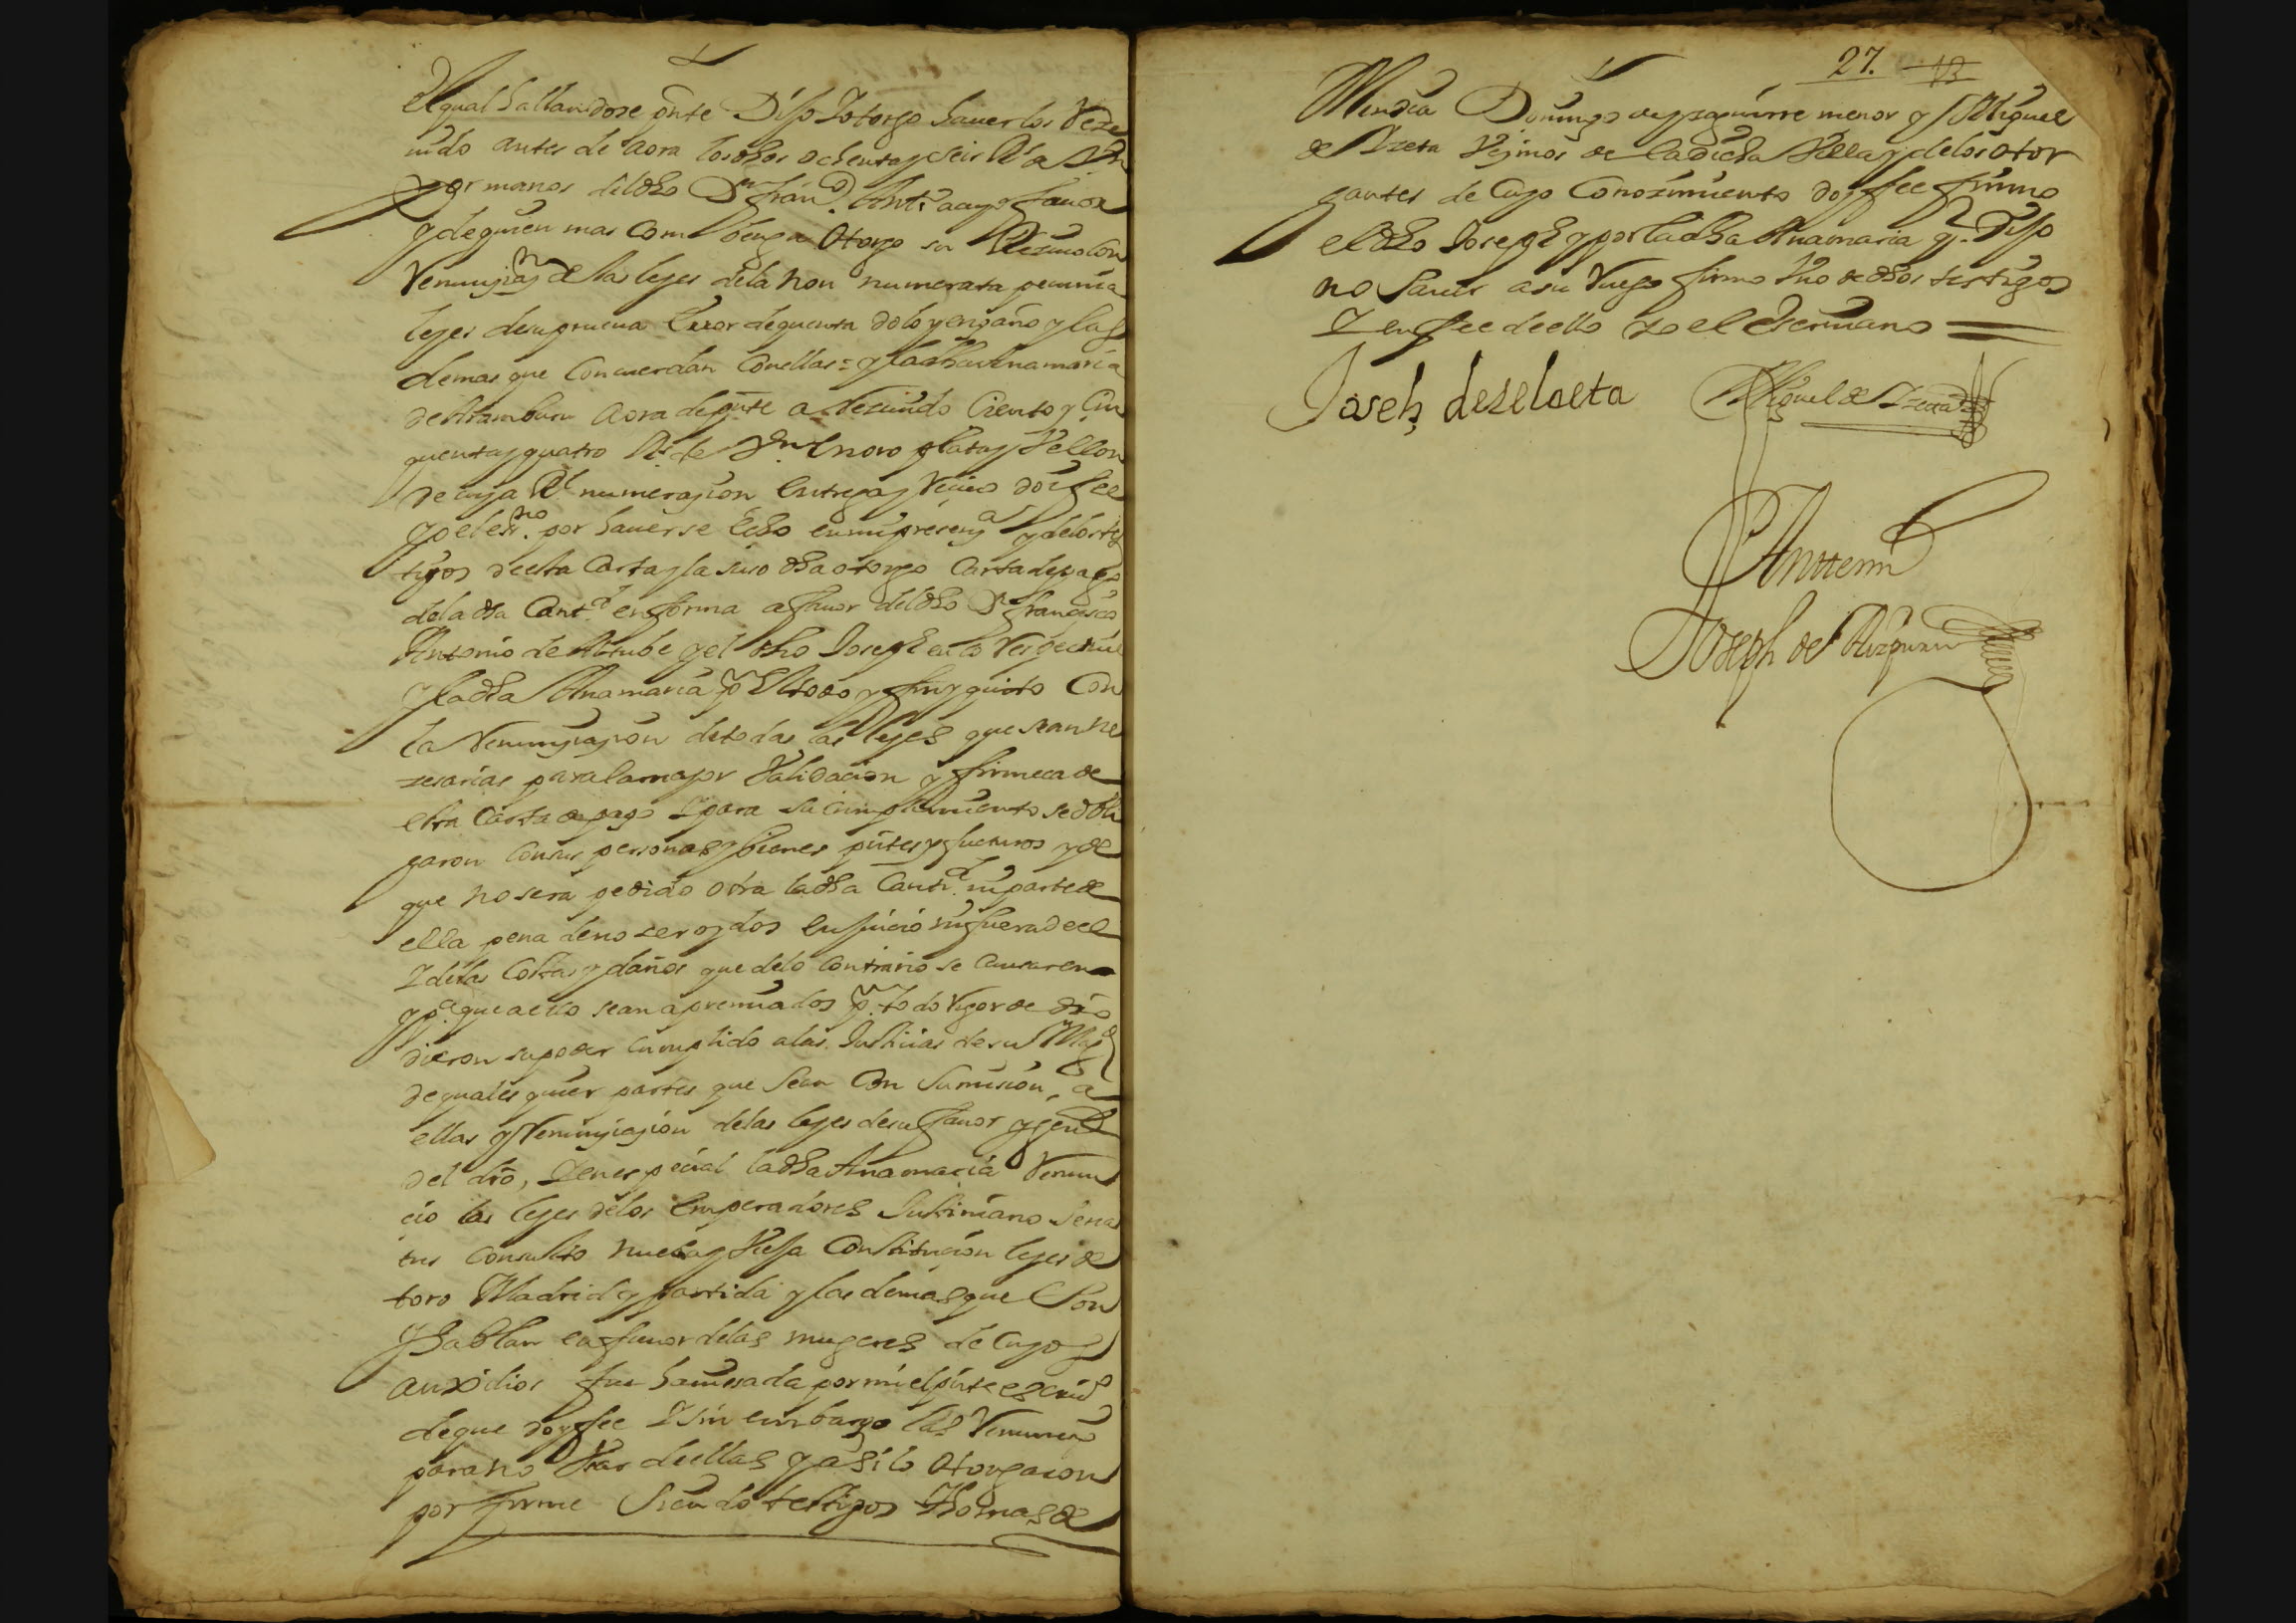 el qual hallandose pnte Dijo Yotorgo hauer los Reze
uido antes de aora los dhos ochenta y seis Rs de Vn
por manos del dho Dn Franco Anto a cuyo fauor
y de quien mas combenga otorgo su Reziuo con
Renunziaon de las leyes de la non numerata pecunia
leyes de su prueua error de quenta dolo y engaño y las
demas que concuerdan con ellas = y la dha Anamaria
de Aramburu aora de pnte a Reziuido Ciento y Cin
quenta y quatro Rs de Vn en oro plata y Vellon
de cuya Rl numerazion entrega y Reziuo doi fee
yo el essno por hauerse echo en mi presenza y de los tes
tigos de esta Carta y la suso dha otorgo Carta de pago
de la dha Cantd en forma a fauor del dho Dn Francisco
Antonio de Atube y el dho Joseph en lo Respectiue
y la dha Anamaria pr el todo y fin y quito Con
la Renunziazion de todas las leyes que sean ne
zesarias para la mayor Validacion y firmeca de
esta Carta de pago Y para su cumplimiento se obli
garon con sus personas y bienes pntes y futuros y de
que no sera pedido otra la dha Cantd ni parte de
ella pena de no ser oydos en juicio ni fuera de el
Y de las Costas y daños que de lo contrario se causaren
y pa que a ello sean apremiados pr todo Rigor de dro
dieron su poder cumplido a las Justicias de su Magd
de quales quier partes que sean Con sumision a
ellas y Renunziazion de las leyes de su fauor y genl
del dro, Y en especial la dha Anamaria Renun
cio las leyes de los Emperadores Justiniano Sena
tus consulto nueba y Vieja Constitucion leyes de
toro Madrid y partida y las demas que son
y hablan en fauor de las mugeres de Cuyos
auxilios fue hauisada por mi el pnte escriuo
de que doy fee Y sin embargo las Renuncio
para no Vsar de ellas y asi lo otorgaron
por firme siendo testigos Thomas de
27. 13
Mendia Domingo de yzaguirre menor y Miguel
de Vzeta Vezinos de la dicha Villa y de los otor
gantes de Cuyo Conozimiento doy fee firmo
el dho Joseph y por la dha Anamaria q. Dijo
no sauer a su Ruego firmo Vno de dhos testigos
Y en fee de ello yo el Escriuano =
Joseh dezelaeta Miguel de Vzeta
Anttemi
Joseph de Aizpuru